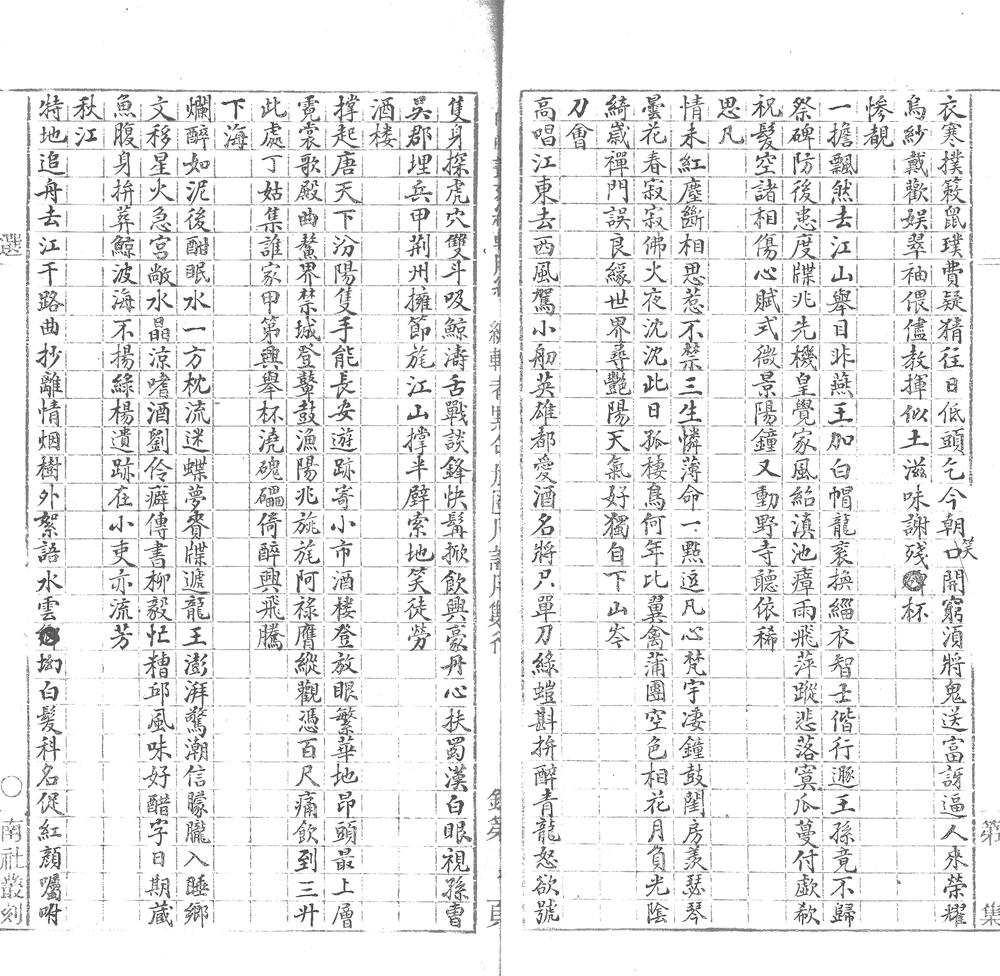 衣寒撲簌鼠璞費疑猜往日低頭乞今朝笑口開窮湏將鬼送富訝逼人來榮耀
烏紗戴歡娛翠袖偎儘教揮似土滋味謝殘杯
慘覩
一擔飄然去江山舉目非燕王加白帽龍袞換緇衣智士偕行遯王孫竟不歸
祭碑防後患度牒兆先機皇覺家風紹滇池瘴雨飛萍蹤悲落寞瓜蔓付歔欷
祝髮空諸相傷心賦式微景陽鐘又動野寺聽依稀
思凡
情未紅塵斷相思惹不禁三生憐薄命一點逗凡心梵宇凄鐘鼓閨房羨瑟琴
曇花春寂寂佛火夜沈沈此日孤棲鳥何年比翼禽蒲團空色相花月負光陰
綺歲禪門誤良緣世界尋艷陽天氣好獨自下山岑
刀會
高唱江東去西風駕小船英雄都愛酒名將只單刀綠螘斟拚醉青龍怒欲號
隻身探虎穴雙斗吸鯨濤舌戰談鋒快髯掀飲興豪丹心扶蜀漢白眼視孫曹
吳郡埋兵甲荆州擁節旄江山撑半壁索地笑徒勞
酒楼
撑起唐天下汾陽隻手能長安遊跡寄小市酒楼登放眼繁華地昂頭最上層
霓裳歌殿曲鰲界禁城登鼙鼓漁陽兆旄旄阿祿膺縱觀憑百尺痛飲到三升
此處丁姑集誰家甲第興舉杯澆磈礧倚醉興飛騰
下海
爛醉如泥後酣眠水一方枕流迷蝶夢賫牒遞龍王澎湃驚潮信朦朧入睡鄉
文移星火急宮敞水晶涼嗜酒劉伶癖傳書柳毅忙糟邱風味好醋字日期蔵
魚腹身拚葬鯨波海不揚綠楊遺跡在小吏亦流芳
秋江
特地追舟去江干路曲抄離情烟樹外絮語水雲坳白髮科名促紅顏囑咐
第 集
選 南社叢刻